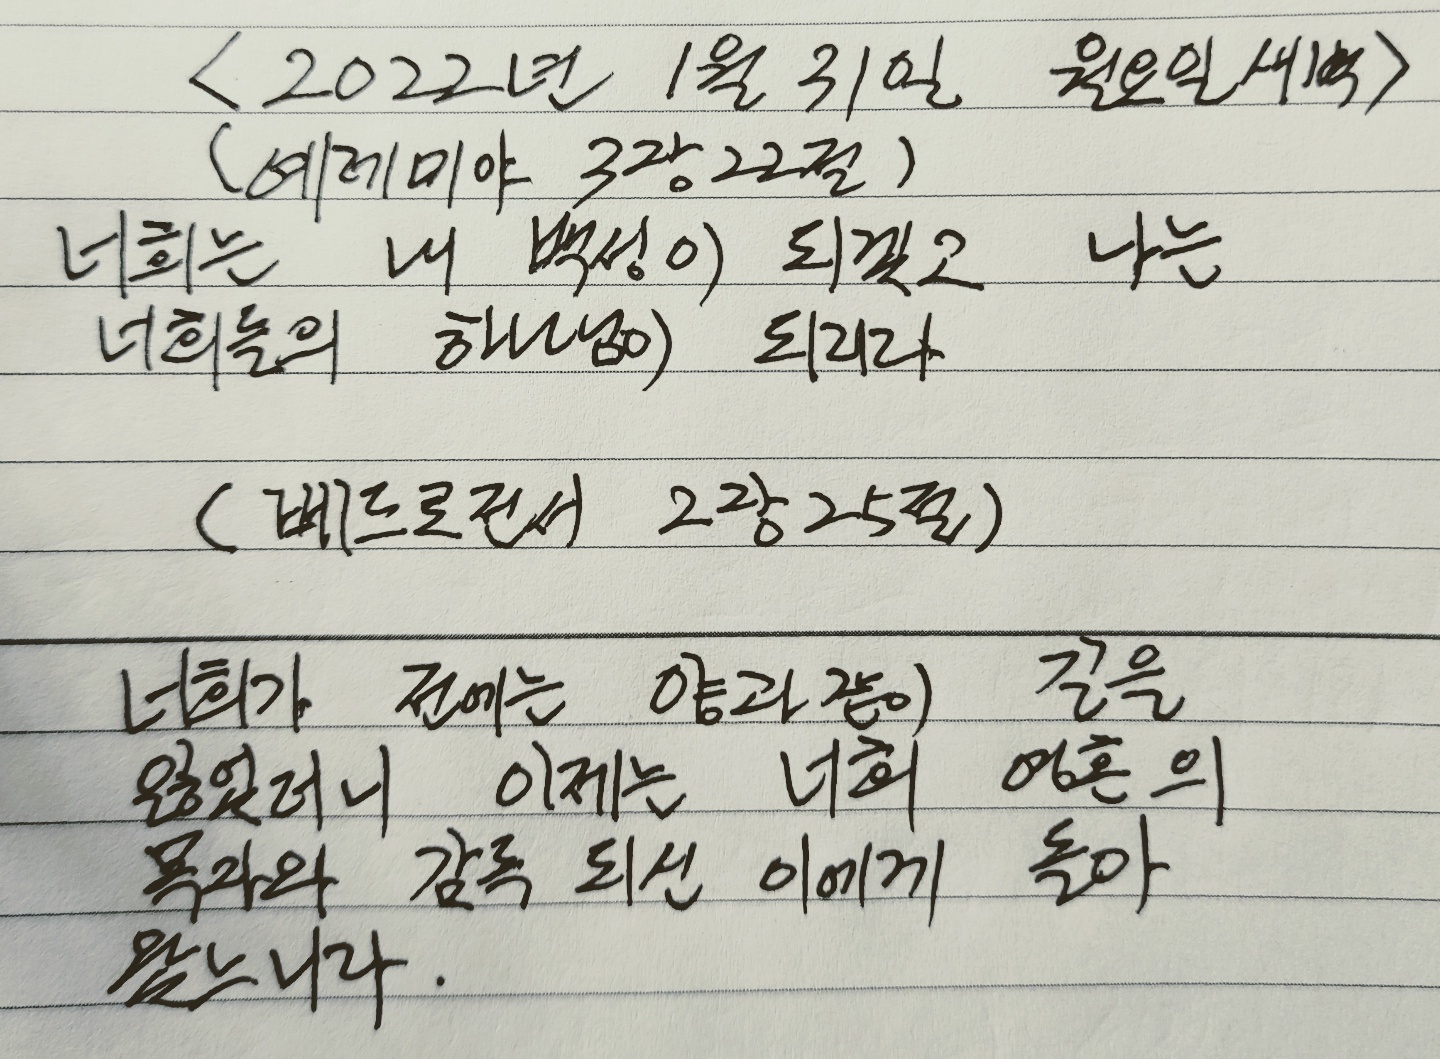 <2022년 1월 31일 월요일 새벽>
(예레미야 3장 22절)
너희는 내 백성이 되겠고 나는
너희들의 하나님이 되리라
(베드로전서 2장 25절)
너희가 전에는 양과 같이 길을
잃었더니 이제는 너희 영혼의
목자와 감독 되신 이에게 돌아
왔느니라.